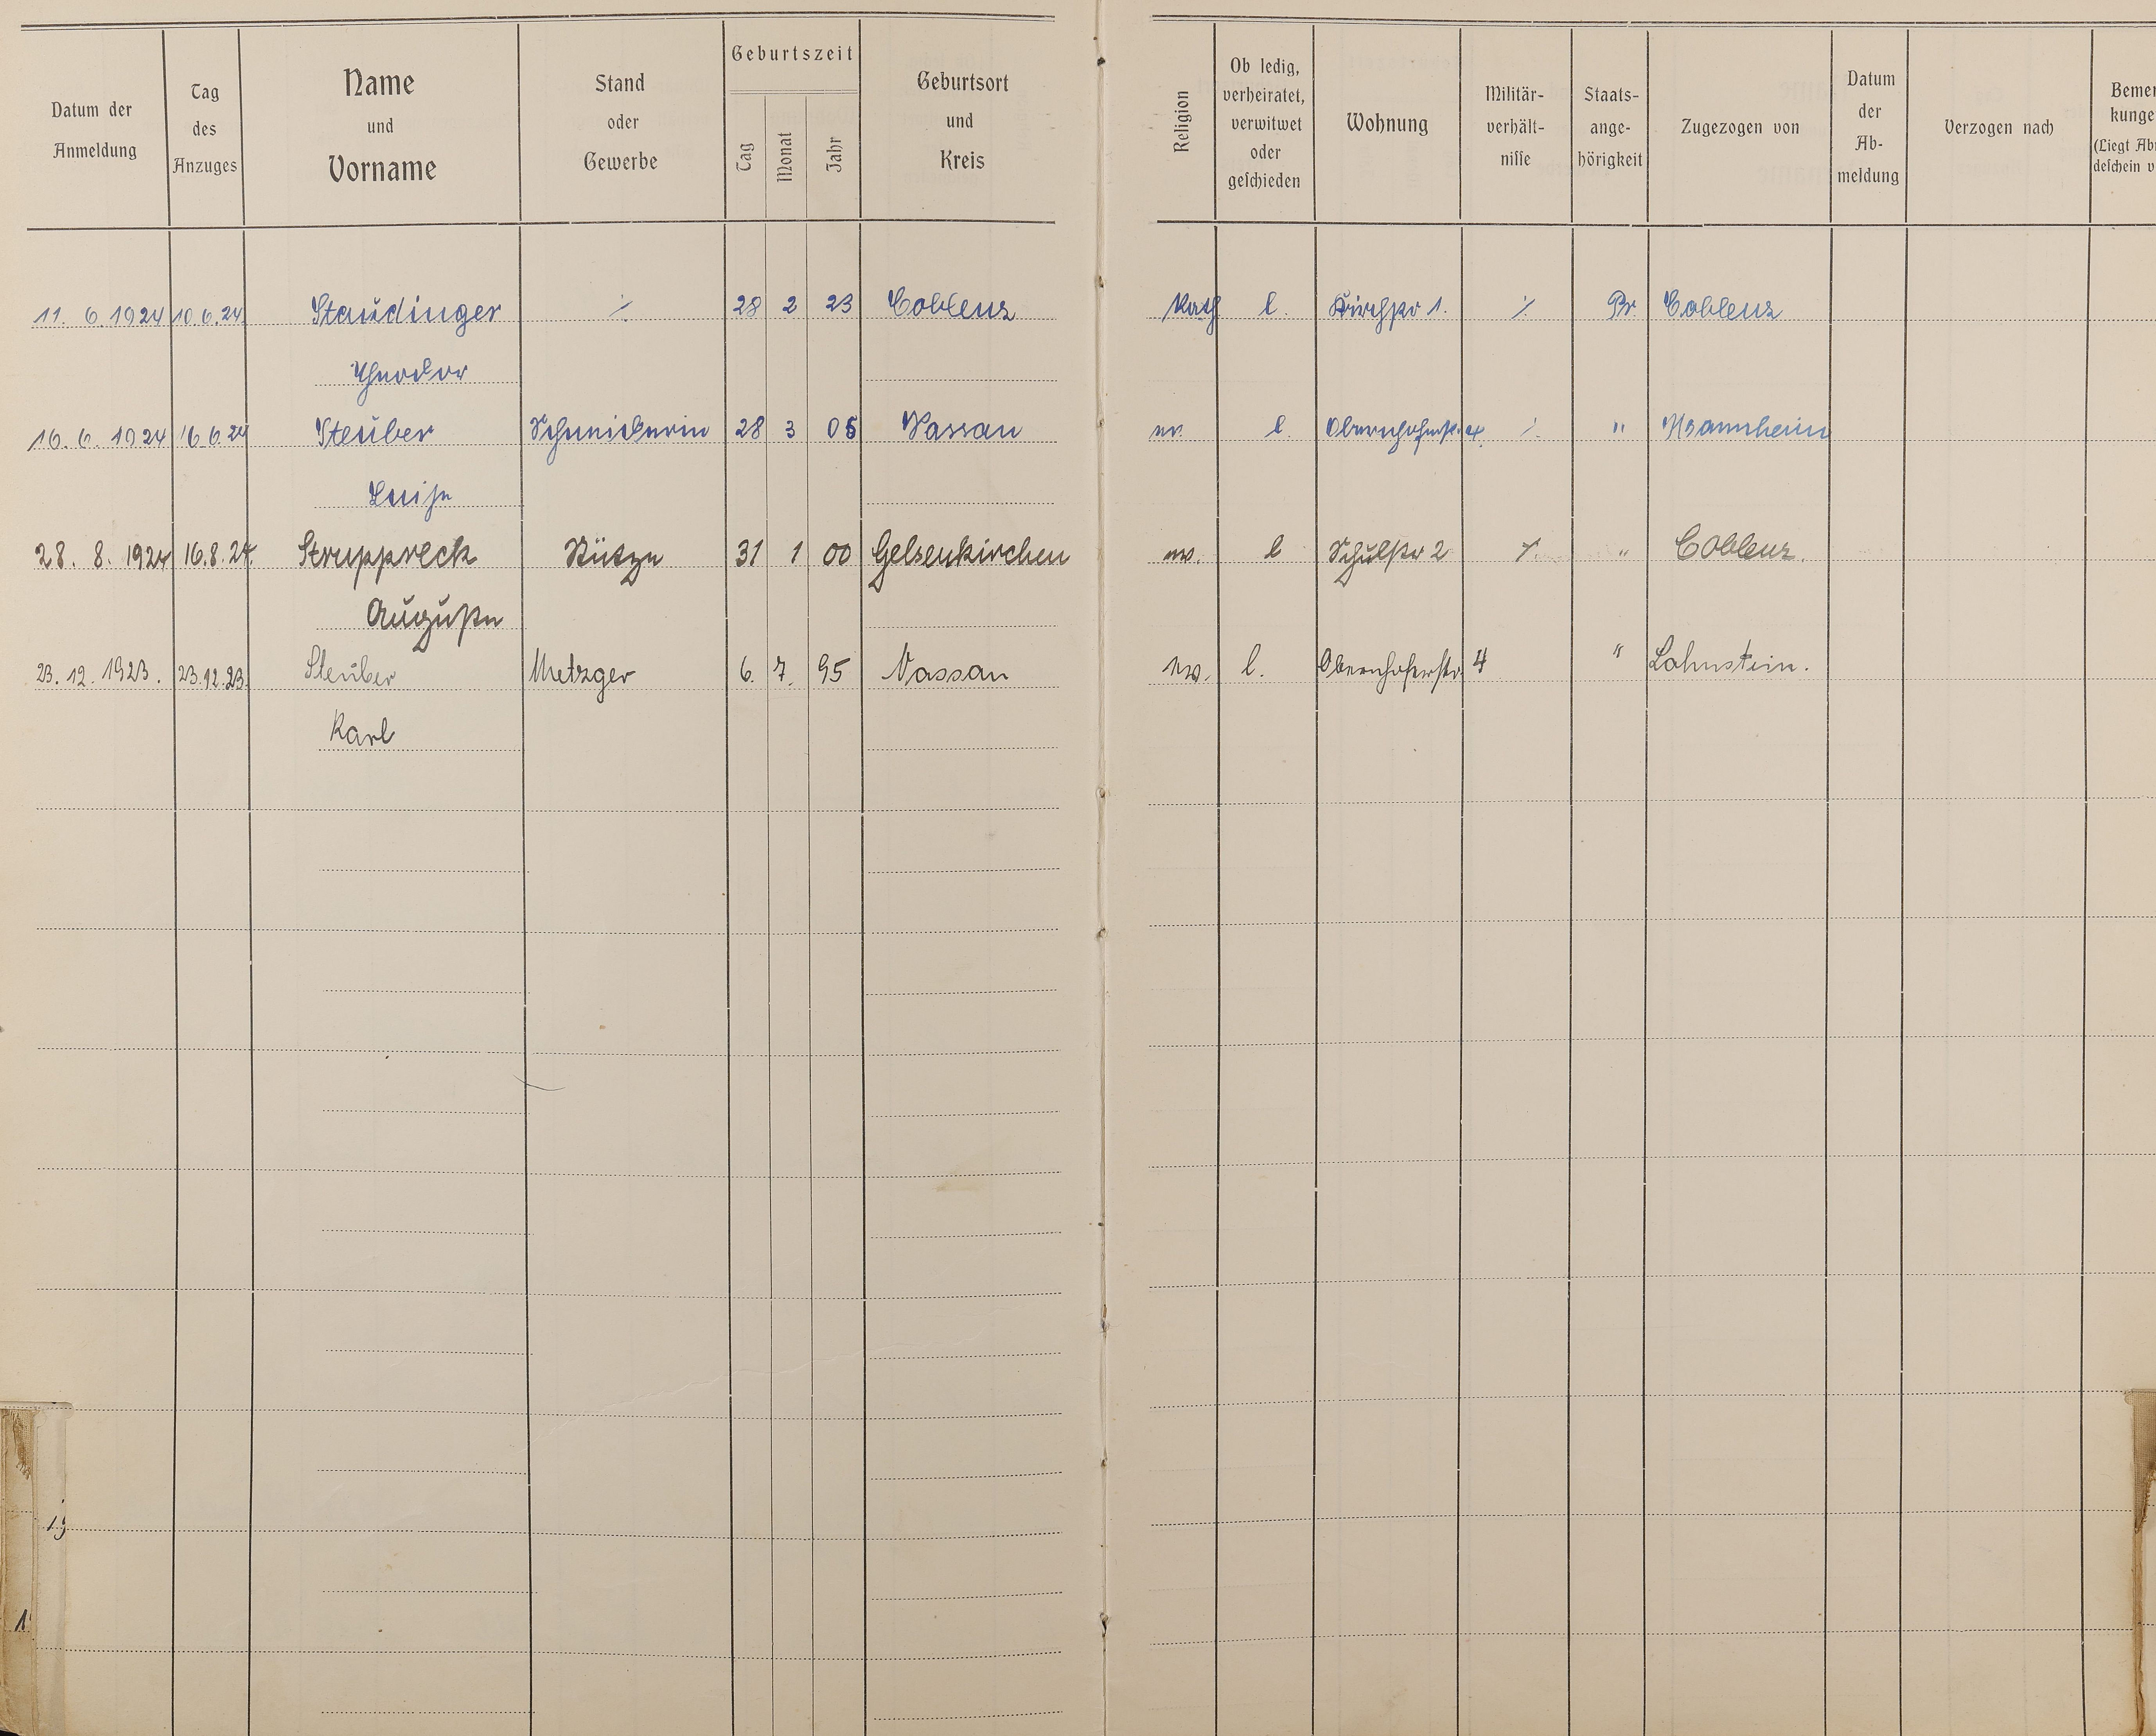 Datum der Anmeldung
Tag des Anzuges
Name und Vorname
Stand oder Gewerbe
Geburtszeit
Tag Monat Jahr
Geburtsort und Kreis
Religion
Ob ledig, verheiratet, verwitwet oder geschieden
Wohnung
Militär-verhält-nisse
Staats-ange-hörigkeit
Zugezogen von
Datum der Ab-meldung
Verzogen nach
Bemer kunge (Liegt Ab deschein v
11. 6. 1924 10.6.24 Staudinger ·/. 28 2 23 Coblenz Kath l. Kirchstr 1. ·/. Pr. Coblenz
Theodor
16. 6. 1924 16.6.24 Steuber Schneiderin 28 3 05 Nassau ev. l. Obernhoferstr. 4. ·/. " Mannheim
Luise
28. 8. 1924 16.8.24. Struppreck Stütze 31 1 00 Gelsenkirchen ev. l Schulstr 2 ·/. " Coblenz.
Auguste
23. 12. 1923. 23.12.23. Steuber Metzger 6. 7. 95 Nassau ev. l. Obernhoferstr. 4 " Lahnstein.
Karl